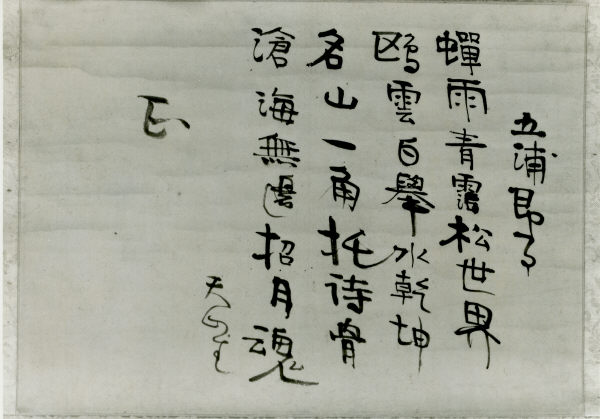 五浦即事
蟬雨青霑松世界
鷗雲白擧水乾坤
名山一角托詩骨
滄海無邊招月魂
天心生
正